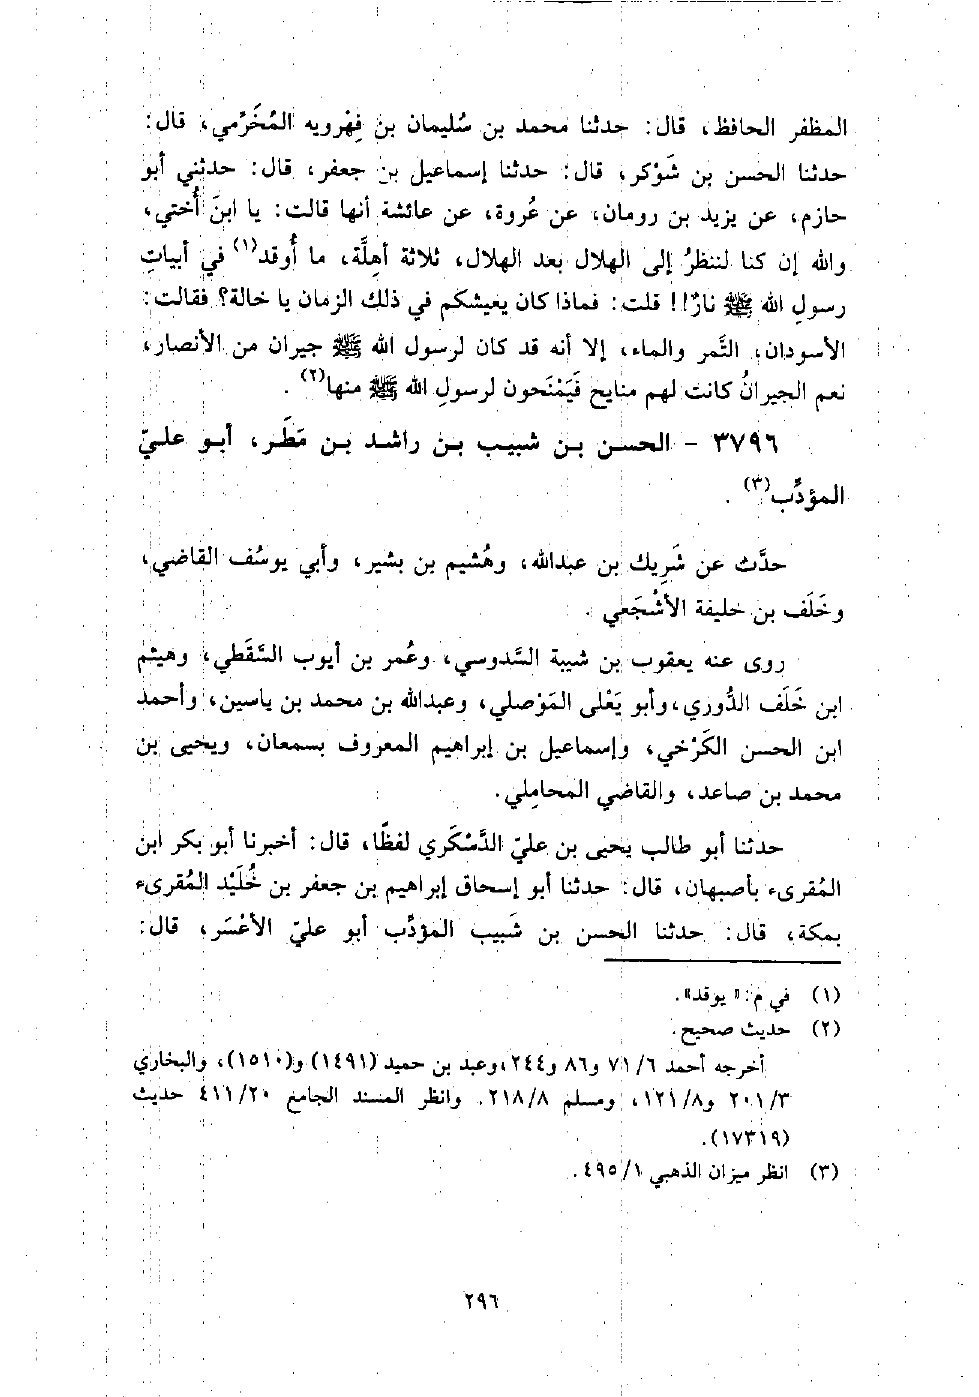 المظفر الحافظ، قال: حدثنا محمد بن سُليمان بن فِهْرويه المُخَرِّمي، قال:
حدثنا الحسن بن شَوْكر، قال: حدثنا إسماعيل بن جعفر، قال: حدثني أبو
حازم، عن يزيد بن رومان، عن عُروة، عن عائشة أنها قالت: يا ابنَ أُختي،
والله إن كنا لننظرُ إلى الهلال بعد الهلال، ثلاثة أهِلَّة، ما أُوقد(١) في أبياتِ
رسولِ الله ﷺ نارٌ!! قلت: فماذا كان يعيشكم في ذلك الزمان يا خالة؟ فقالت:
الأسودان، التَّمر والماء، إلا أنه قد كان لرسول الله ﷺ جيران من الأنصار،
نعم الجيرانُ كانت لهم منايح فَيَمْنَحون لرسولِ الله ﷺ منها(٢).
٣٧٩٦ - الحسن بن شبيب بن راشد بن مَطَر، أبو عليّ
المؤدِّب(٣).
حدَّث عن شَرِيك بن عبدالله، وهُشيم بن بشير، وأبي يوسُف القاضي،
وخَلَف بن خليفة الأشْجَعي.
روى عنه يعقوب بن شيبة السَّدوسي، وعُمر بن أيوب السَّقَطي، وهيثم
ابن خَلَف الدُّوري، وأبو يَعْلى المَوْصلي، وعبدالله بن محمد بن ياسين، وأحمد
ابن الحسن الكَرْخي، وإسماعيل بن إبراهيم المعروف بسمعان، ويحيى بن
محمد بن صاعد، والقاضي المحامِلي.
حدثنا أبو طالب يحيى بن عليّ الدَّسْكَري لفظًا، قال: أخبرنا أبو بكر ابن
المُقرىء بأصبهان، قال: حدثنا أبو إسحاق إبراهيم بن جعفر بن خُلَيْد المُقرىء
بمكة، قال: حدثنا الحسن بن شَبيب المؤدِّب أبو عليّ الأعْسَر، قال:
(١) في م: «يوقد».
(٢) حديث صحيح.
أخرجه أحمد ٦/ ٧١ و٨٦ و٢٤٤، وعبد بن حميد (١٤٩١) و(١٥١٠)، والبخاري
٣/ ٢٠١ و٨/ ١٢١، ومسلم ٨/ ٢١٨. وانظر المسند الجامع ٢٠/ ٤١١ حديث
(١٧٣١٩).
(٣) انظر ميزان الذهبي ١/ ٤٩٥.
٢٩٦